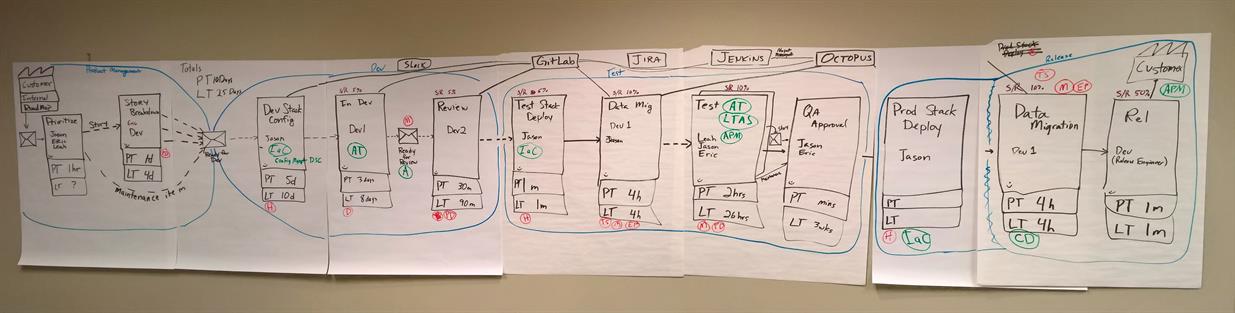 Customer
Internal
RoadMap
Product Management
Prioritize
Jason
Eric
Leah
PT 1hr
LT ?
Story
Story
Breakdown
Eric
Dev
PT 1d
LT 4d
Maintenance item
Totals
PT 10Days
LT 25 Days
Ready for
Dev
Dev Stack
Config
Jason
IaC
Config Mgmt DSC
PT 5d
LT 10d
H
Dev
S/R 5%
In Dev
Dev1
AT
PT 3days
LT 8days
D
M
Ready
for
Review
A
S/R 5%
Review
Dev2
PT 30m
LT 90m
PD
Slack
GitLab
JIRA
Jenkins
Octopus
Test
S/R 5%
Test Stack
Deploy
Jason
IaC
PT 1m
LT 1m
H
S/R 10%
Data Mig
Dev 1
Jason
PT 4h
LT 4h
TS M EP
S/R 10%
Test
AT
LTAS
APM
Leah
Jason
Eric
PT 2hrs
LT 26hrs
M TD
QA
Approval
Jason
Eric
PT mins
LT 3wks
Prod Stack
Deploy
Jason
PT
LT
H IaC
Prod Stack
Deploy
Release
TS
S/R 10% M EP
Data
Migration
Dev 1
PT 4h
LT 4h
CD
Customer
S/R 50% APM
Rel
Dev
(Release Engineer)
PT 1m
LT 1m